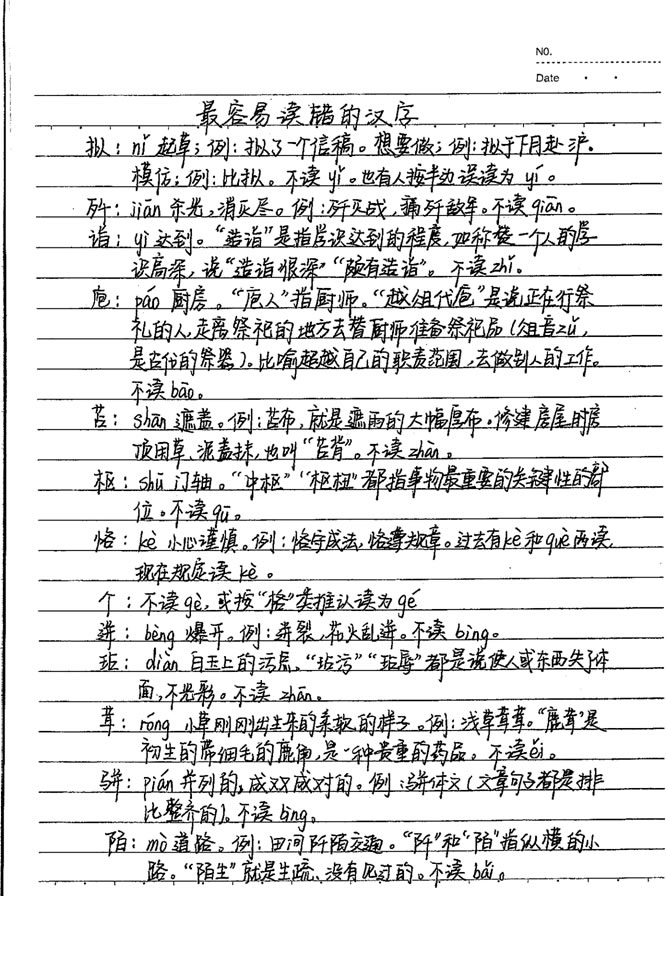 NO.
Date
最容易读错的汉字
拟：nǐ 起草；例：拟了一个信稿。想要做；例：拟于下月赴沪。
模仿；例：比拟。不读yǐ。也有人按半边误读为 yí。
歼：jiān 杀光，消灭尽。例：歼灭战，痛歼敌军。不读qiān。
诣：yì 达到。“造诣”是指学识达到的程度，如称赞一个人的学
识高深，说“造诣很深”“颇有造诣”。不读zhǐ。
庖：páo 厨房。“庖人”指厨师。“越俎代庖”是说正在行祭
礼的人，走离祭祀的地方去替厨师准备祭祀品（俎音zǔ，
是古代的祭器）。比喻超越自己的职责范围，去做别人的工作。
不读bāo。
苫：shān 遮盖。例：苫布，就是遮雨的大幅厚布。修建房屋时房
顶用草、泥盖抹，也叫“苫背”。不读zhān。
枢：shū 门轴。“中枢”“枢纽”都指事物最重要的关键性的部
位。不读qū。
恪：kè 小心谨慎。例：恪守成法，恪尊规章。过去有kè和què两读，
现在规定读 kè。
个：不读gè，或按“格”类推认读为gé
迸：bèng 爆开。例：迸裂，花火乱迸。不读bìng。
玷：diàn 白玉上的污点。“玷污”“玷辱”都是说使人或东西失了体
面，不光彩。不读 zhān。
茸：róng 小草刚刚出生来的柔软的样子。例：浅草茸茸。“鹿茸”是
初生的带细毛的鹿角，是一种贵重的药品。不读ěi。
骈：pián 并列的，成双成对的。例：骈体文（文章句子都是排
比整齐的）。不读bìng。
陌：mò 道路。例：田间阡陌交通。“阡”和“陌”指纵横的小
路。“陌生”就是生疏、没有见过的。不读bǎi。